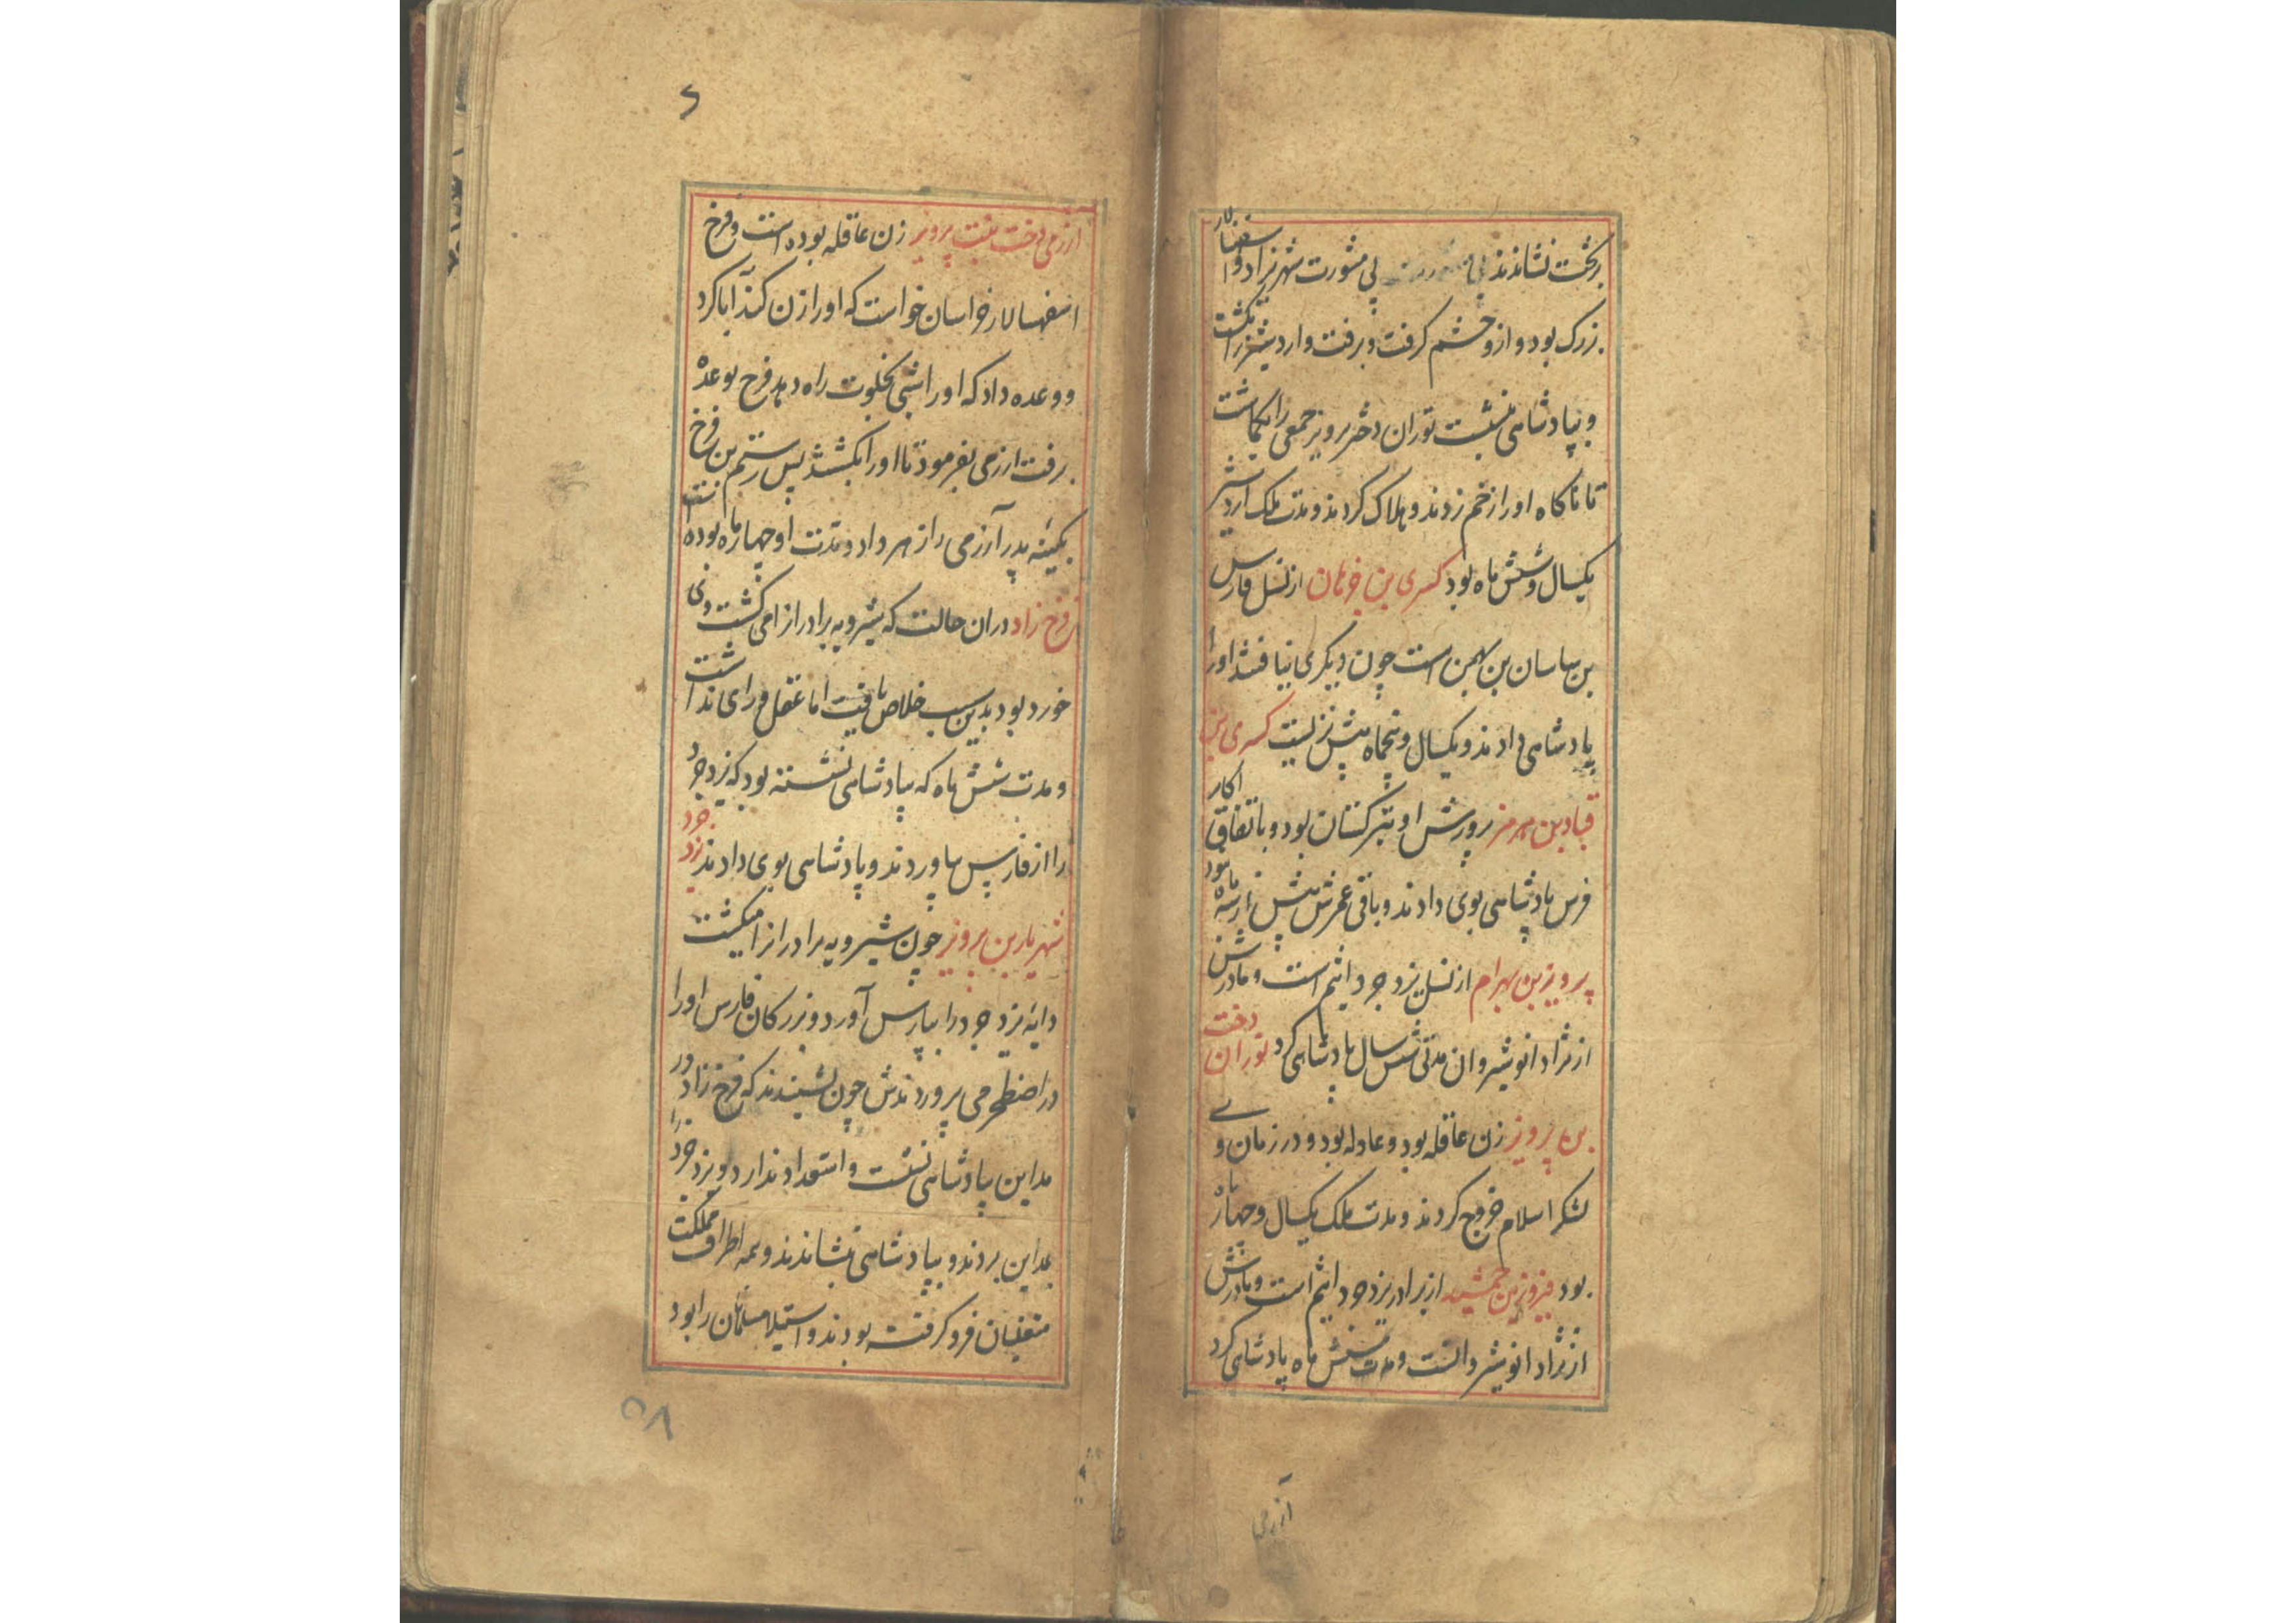 بر تخت نشاندند بی مشورت شهریزاد و اسفهسالار
بزرک بود و ازو خشم کرفت و برفت و اردشیر را بکشت
و بپادشاهی بنشست توران دختر پرویز جمعی را بکماشت
تا ناکاه او را زخم زدند و هلاک کردند و مدت ملک اردشیر
یکسال و شش ماه بود کسری بن خرهان از نسل فارس
بن ساسان بن بهمن است چون دیکری نیافتند او را
پادشاهی دادند و یکسال و پنجماه بیش نزیست کسری بن
قباد بن هرمز پرورش او بترکستان بود و باتفاق اکابر
فرس پادشاهی بوی دادند و باقی عمرش بیش از سه ماه نبود
پرویز بن بهرام از نسل یزدجرد اثیم است و مادرش
از نژاد انوشیروان مدتی شش سال پادشاهی کرد توران دخت
بن پرویز زن عاقله بود و عادله بود و در زمان وے
لشکر اسلام خروج کردند و مدت ملک یکسال و چهار ماه
بود فیروز بن جمشید از برادر یزدجرد اثیم است و مادرش
از نژاد انوشیروانست و مدت شش ماه پادشاهی کرد
آزرمی
ارزمی دخت بنت پرویز زن عاقله بوده است و فرخ
اسفهسالار خراسان خواست که او را زن کند آبا کرد
و وعده داد که او را شبی بخلوت راه دهد فرخ بوعده
برفت ارزمی بفرمود تا او را بکشتند پس رستم بن فرخ
بکینه پدر آزرمی را زهر داد و مدت او چهار ماه بوده است
فرخ زاد دران حالت که شیرویه برادرانرا می کشت وی
خورد بود بدین سبب خلاص یافت اما عقل و رای نداشت
و مدت شش ماه که بپادشاهی نشسته بود که یزدجرد
را از فارس بیاوردند و پادشاهی بوی دادند یزدجرد
شهریار بن پرویز چون شیرویه برادرانرا میکشت
دایه یزدجرد را بپارس آورد و بزرکان فارس او را
در اصطخر می پروردندش چون بشنیدند که فرخ زاد در
مداین بپادشاهی نشست و استعداد ندارد و یزدجرد را
بمداین بردند و بپادشاهی بنشاندند و همه اطراف مملکت
متغلبان فرو کرفته بودند و استیلا مسلمانرا بود
۵۸